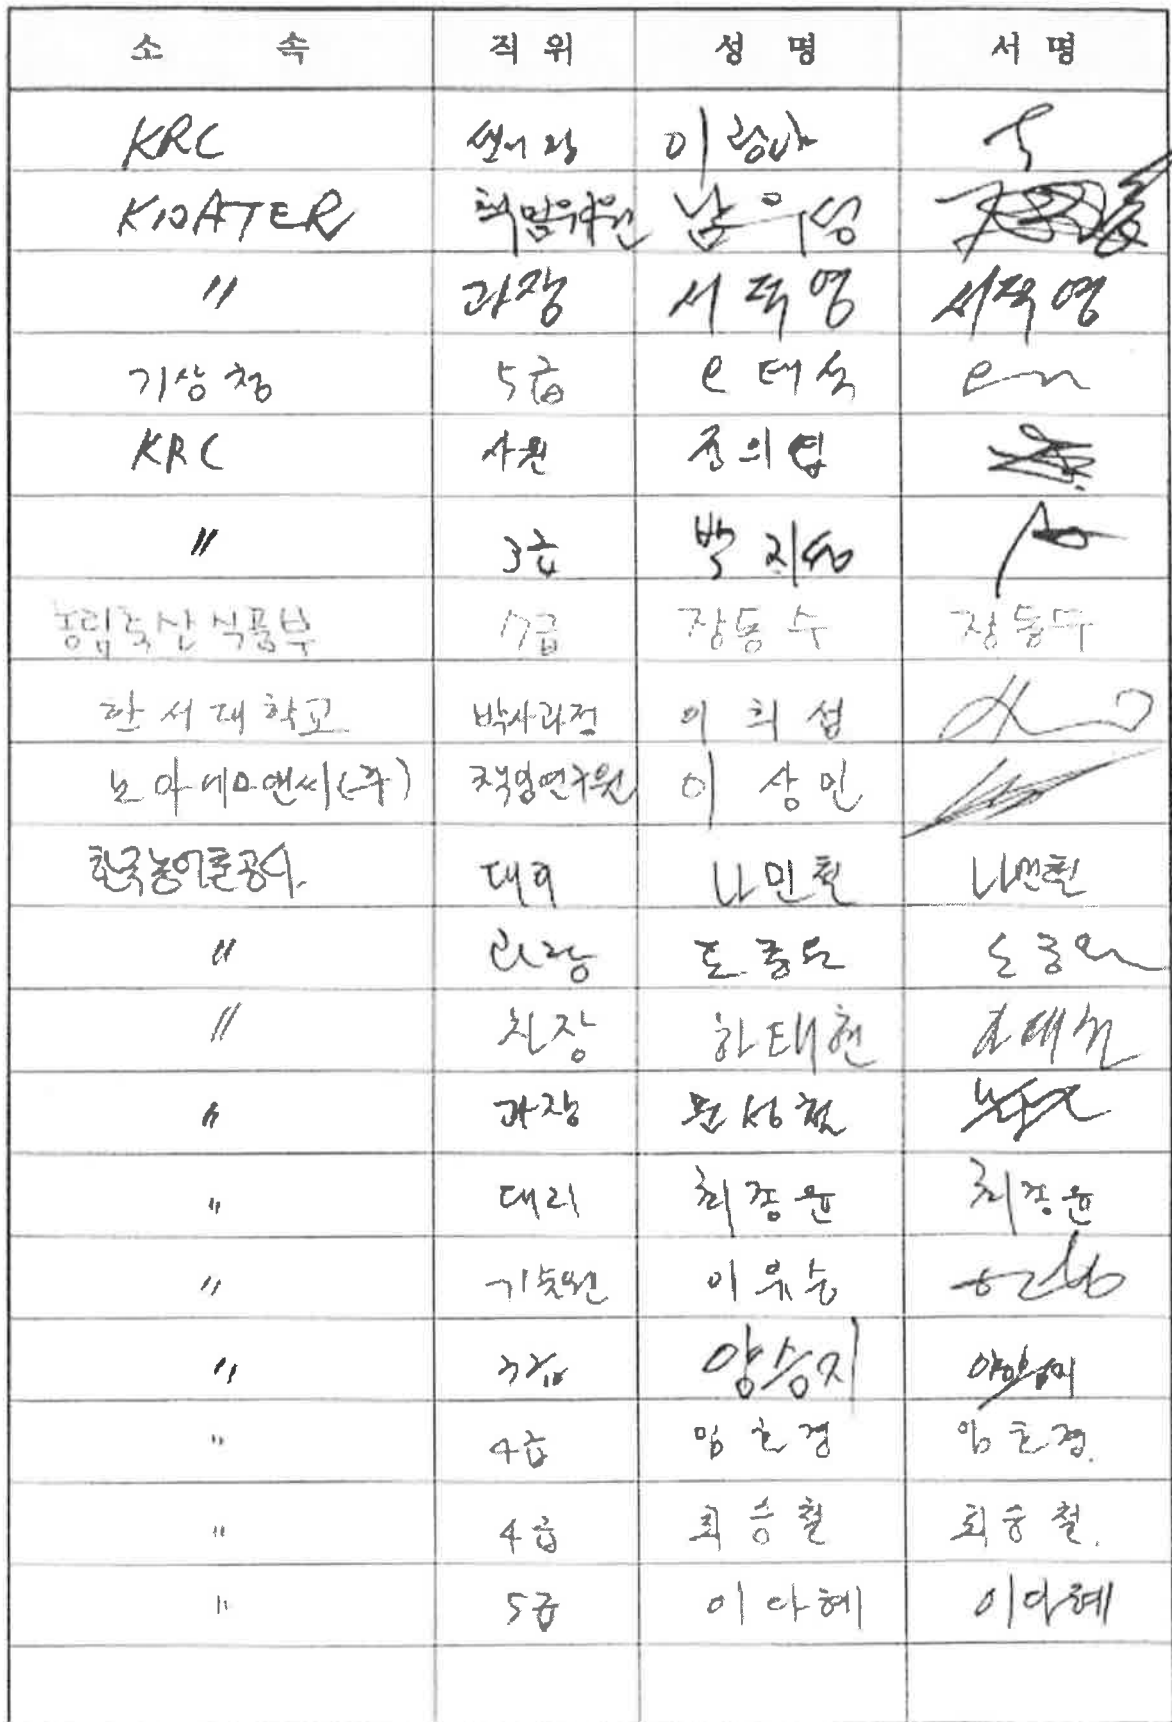 소 속 직 위 성 명 서 명
KRC 이
KWATER 책임위원 남우성
〃 과장 서덕영 서덕영
기상청 5급 태석
KRC 사원 조의엽
〃 3급 박지성
농림축산식품부 7급 장동수 장동수
한서대학교 박사과정 이희섭
노아에스앤씨(주) 책임연구원 이상민
한국농어촌공사. 대리 나민철 나민철
〃 과장
〃 차장 하태현
〃 과장 문성철
〃 대리 최종윤 최종윤
〃 기술원 이유승
〃 3급 양승지
〃 4급 임춘경
〃 4급 최승철 최승철.
〃 5급 이아혜 이아혜